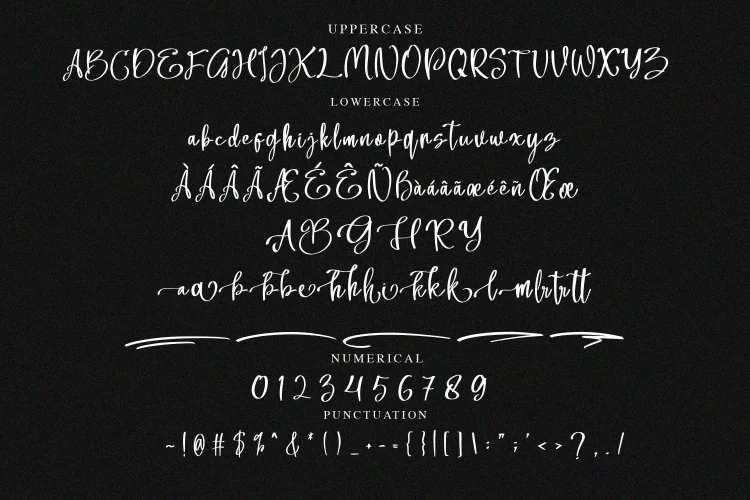 UPPERCASE
ABCDEFGHIJKLMNOPQRSTUVWXYZ
LOWERCASE
abcdefghijklmnopqrstuvwxyz
ÀÁÂÃÆÉÊÑßàáâãæéêñŒœ
ABGHRY
NUMERICAL
0123456789
PUNCTUATION
~!@#$%^&*()_+-={}|[]\:";'<>?,./